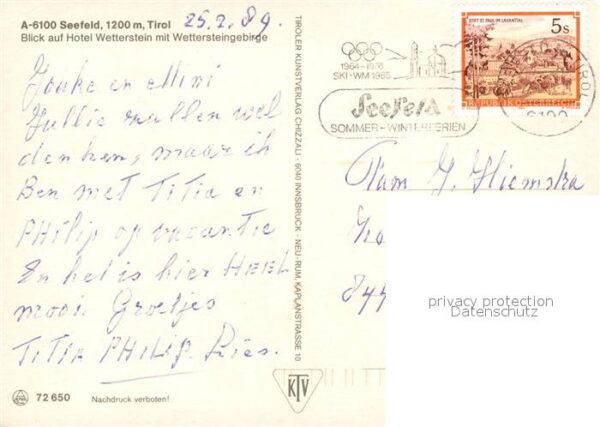 A-6100 Seefeld, 1200 m, Tirol
Blick auf Hotel Wetterstein mit Wettersteingebirge
25.2.89.
Jouke en Mini
Jullie zullen wel
denken, maar ik
Ben met Titia en
PHiLip op vacantie
En het is hier HEEL
mooi Groetjes
TiTia PHILIP. Ries.
72 650
Nachdruck verboten!
TIROLER KUNSTVERLAG CHIZZALI · 6040 INNSBRUCK - NEU-RUM, KAPLANSTRASSE 10
KTV
1964-1976
SKI-WM 1985
Seefeld
SOMMER-WINTERFERIEN
STIFT ST. PAUL IM LAVANTTAL
5s
REPUBLIK ÖSTERREICH
TIROL
6100
Fam G. Hiemstra
844
privacy protection
Datenschutz